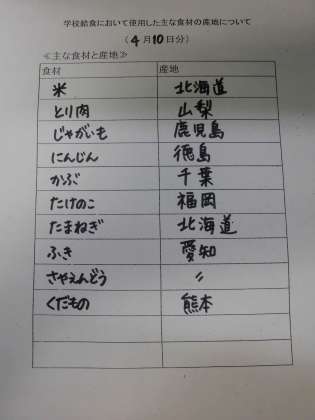 学校給食において使用した主な食材の産地について
(4月10日分)
≪主な食材と産地≫
食材 産地
米 北海道
とり肉 山梨
じゃがいも 鹿児島
にんじん 徳島
かぶ 千葉
たけのこ 福岡
たまねぎ 北海道
ふき 愛知
さやえんどう 〃
くだもの 熊本